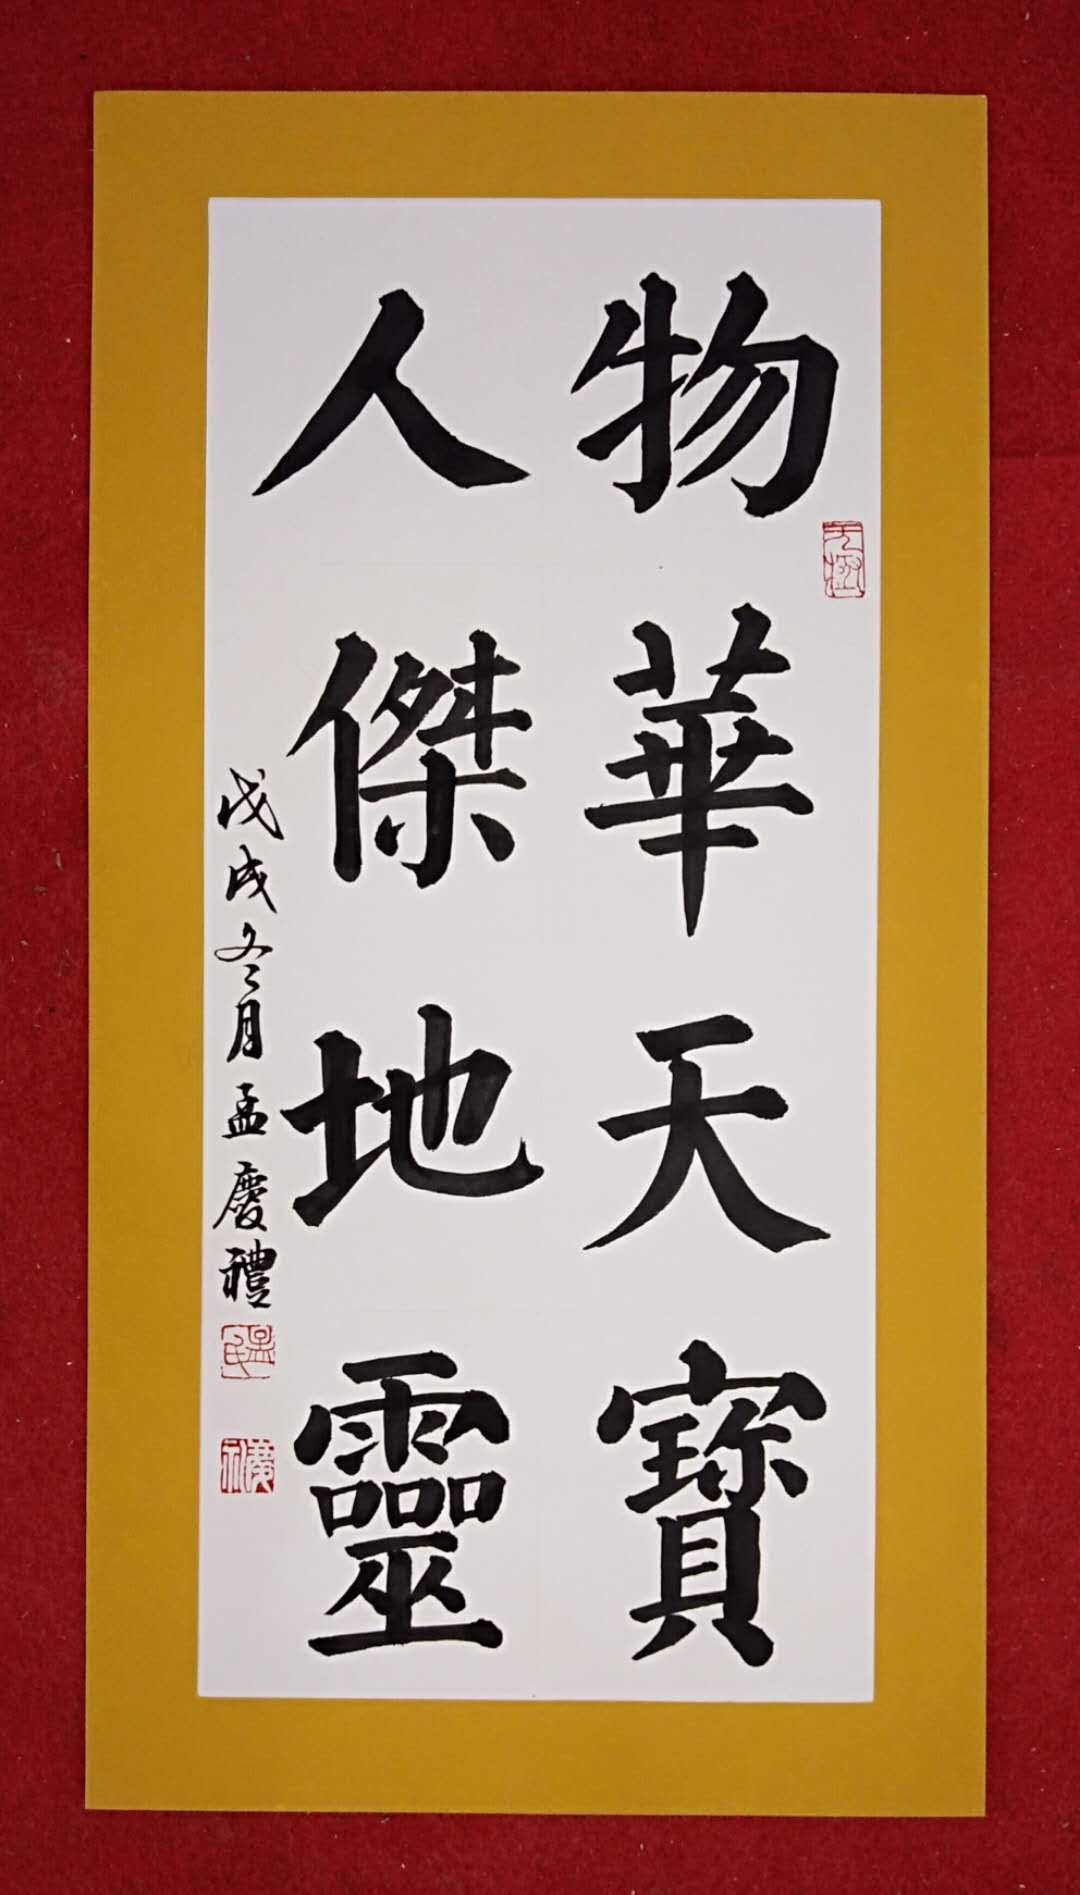 物華天寶
人傑地靈
戊戌冬月孟慶禮